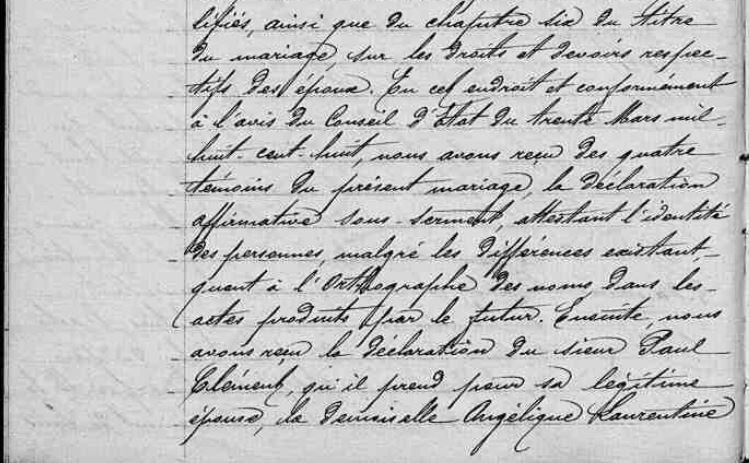 lifiés, ainsi que du chapitre six du titre
du mariage sur les droits et devoirs respec-
tifs des époux. En cet endroit et conformément
à l'avis du Conseil d'État du trente Mars mil-
huit-cent-huit, nous avons reçu des quatre
témoins du présent mariage, la déclaration
affirmative sous-serment, attestant l'identité
des personnes, malgré les différences existant,
quant à l'Orthographe des noms, dans les-
actes produits par le futur. Ensuite, nous
avons reçu la déclaration du sieur Paul
Clément, qu'il prend pour sa légitime
épouse, la demoiselle Angélique Laurentine